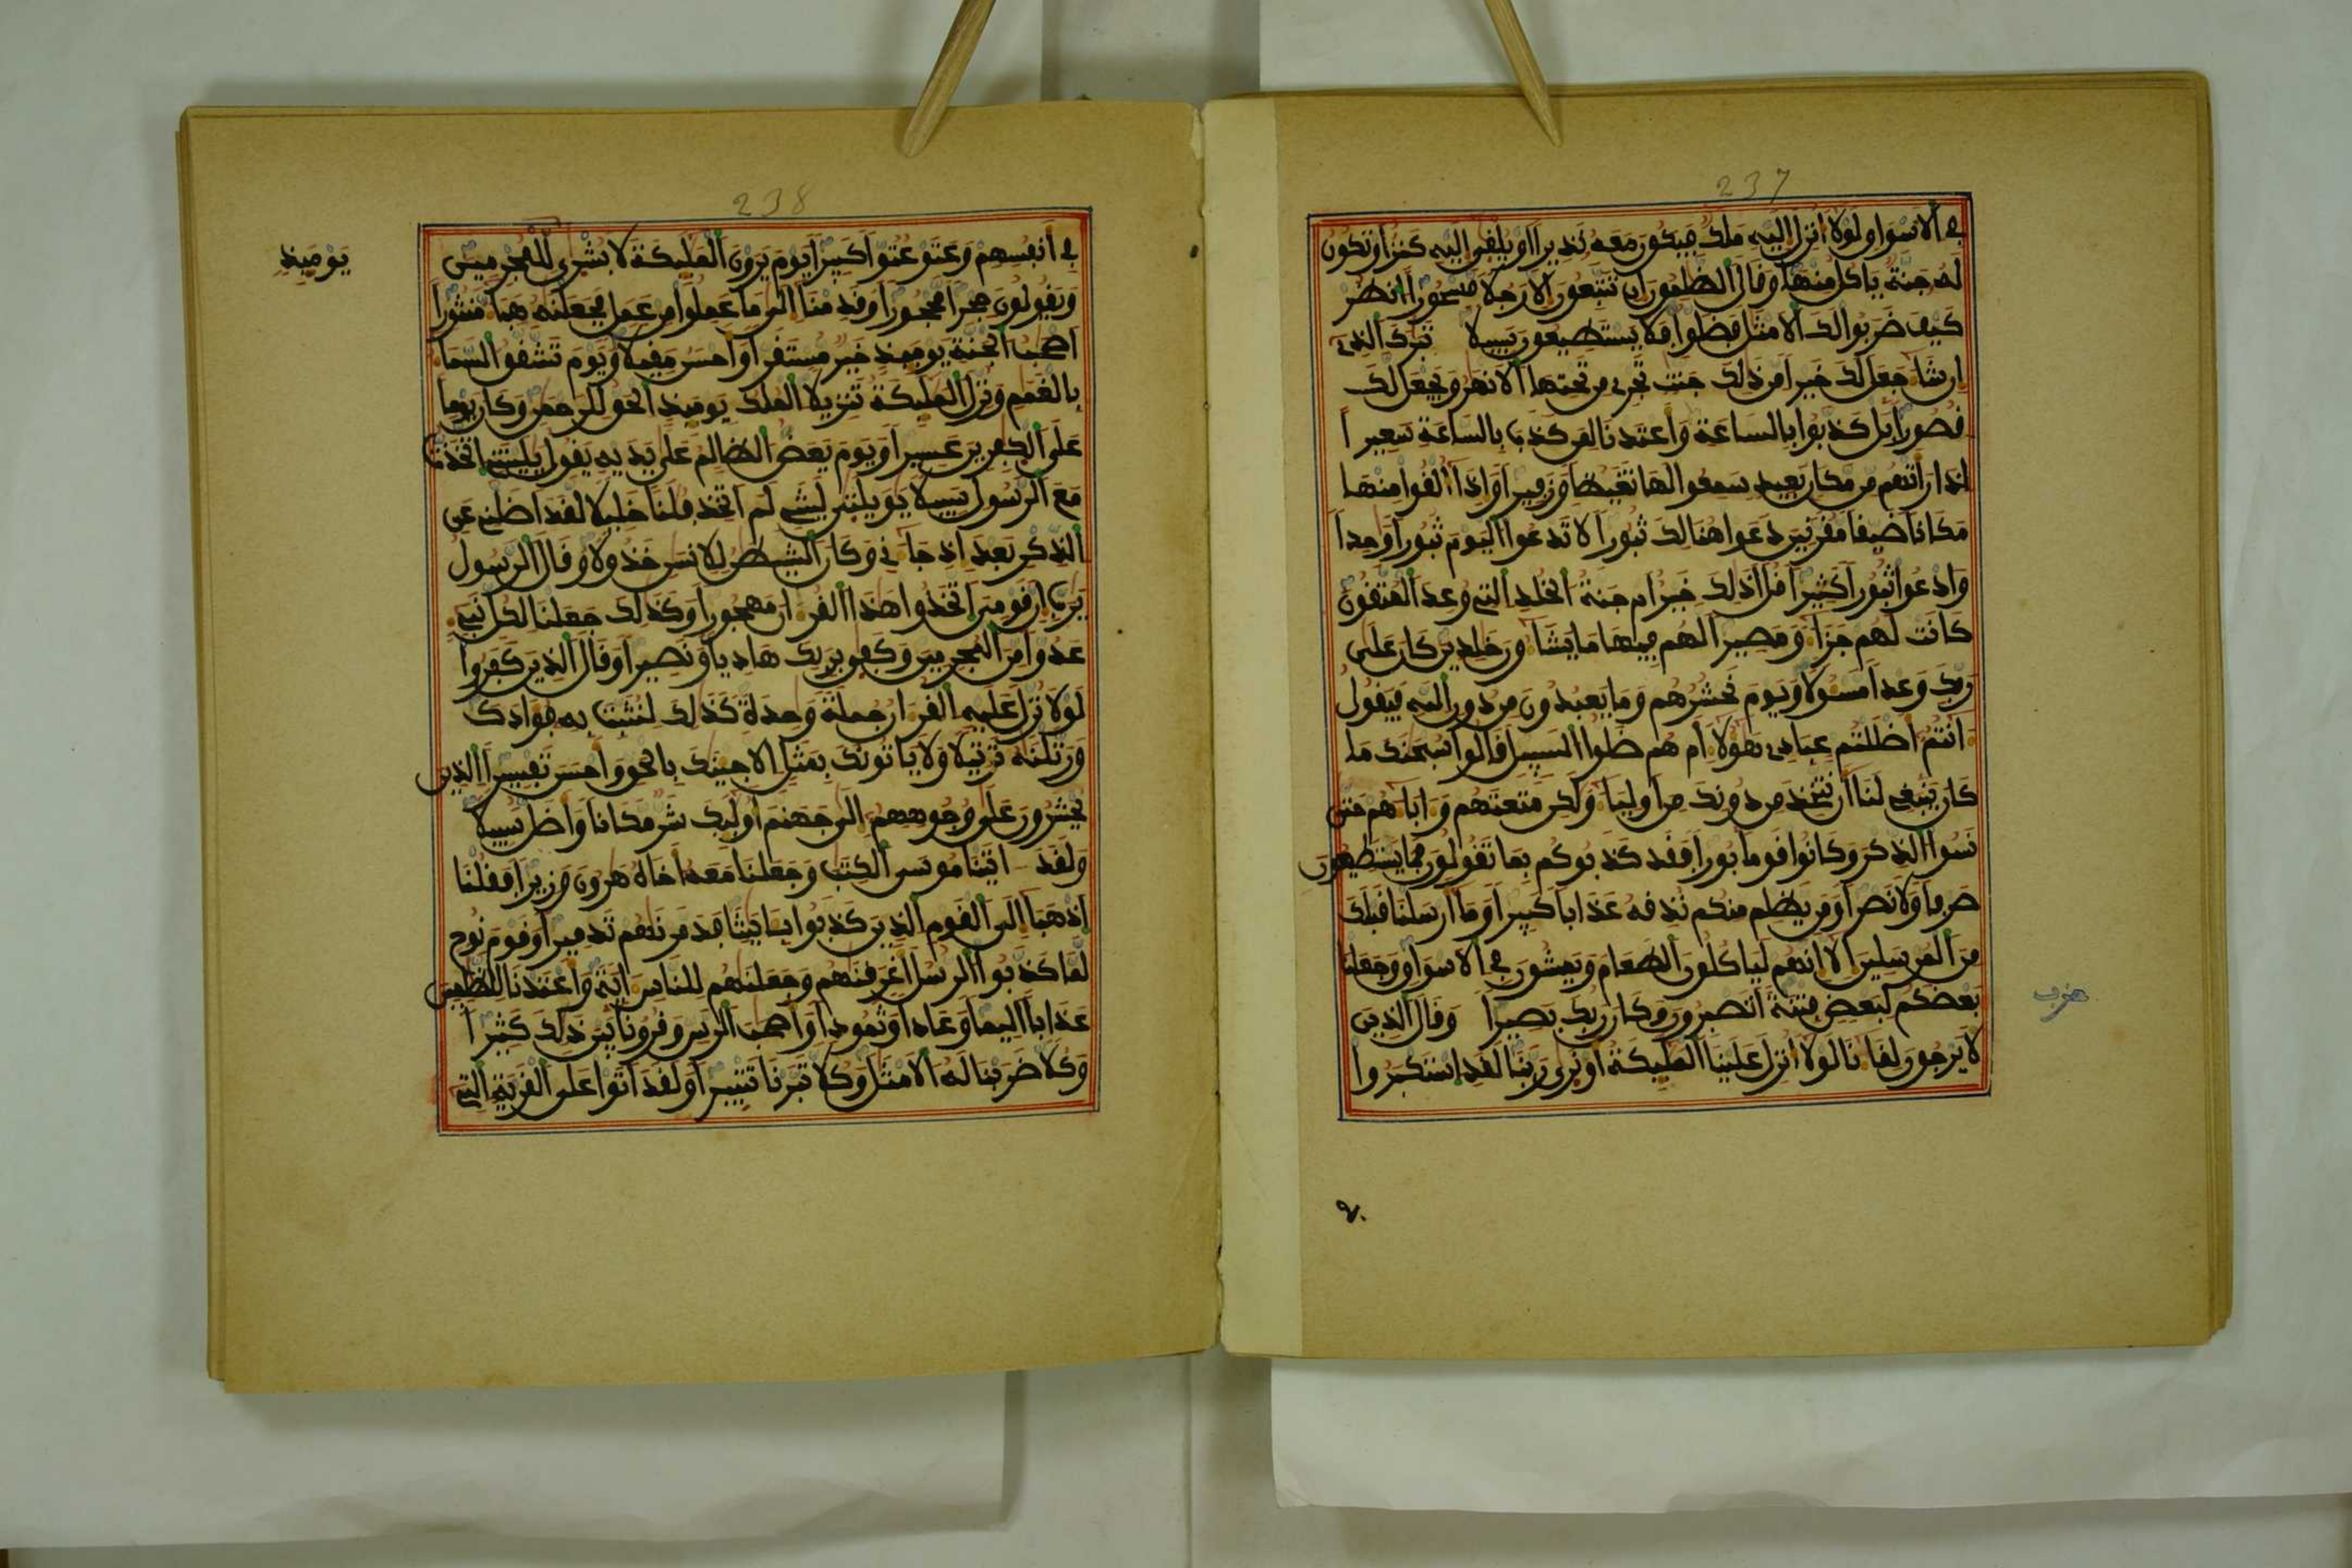 237
في الاسواو لولا انزل اليه ملك فيكون معه نذيرا او يلفى اليه كنز او تكون
له جنة ياكل منها وفال الظلمون ان تتبعون الا رجلا مسحورا انظر
كيف ضربوا لك الامثل فضلوا فلا يستطيعون سبيلا تبرك الذي
ان شا جعل لك خيرا من ذلك جنت تجري من تحتها الانهر ويجعل لك
فصورا بل كذبوا بالساعة واعتدنا لمن كذب بالساعة سعيرا
اذا راتهم من مكان بعيد سمعوا لها تغيظا وزفيرا واذا الفوا منها
مكانا ضيفا مفرنين دعوا هنالك ثبورا لا تدعوا اليوم ثبورا وحدا
وادعوا ثبورا كثيرا فل اذلك خير ام جنة الخلد التي وعد المتفون
كانت لهم جزا ومصيرا لهم فيها ما يشاون خلدين كان على
ربك وعدا مسولا ويوم نحشرهم وما يعبدون من دون الله فيفول
انتم اضللتم عبادي هولا ام هم ضلوا السبيل فالوا سبحنك ما
كان ينبغي لنا ان نتخذ من دونك من اوليا ولكن متعتهم وابا هم حتى
نسوا الذكر وكانوا فوما بورا ففد كذبوكم بما تفولون فما يستطيعون
صرفا ولا نصرا ومن يظلم منكم نذفه عذابا كبيرا وما ارسلنا فبلك
من المرسلين الا انهم لياكلون الطعام ويمشون في الاسواو وجعلنا
بعضكم لبعض فتنة اتصبرون وكان ربك بصيرا وفال الذين
لا يرجون لفا نا لولا انزل علينا المليكة او نرى ربنا لفد استكبروا
حزب
238
في انفسهم وعتو عتوا كبيرا يوم يرون المليكة لا بشرى للمجرمين
يوميذ
ويفولون حجرا محجورا وفدمنا الى ما عملوا من عمل فجعلنه هبا منثورا
اصحب الجنة يوميذ خير مستفرا واحسن مفيلا ويوم تشفو السما
بالغمم ونزل المليكة تنزيلا الملك يوميذ الحو للرحمن وكان يوما
على الكفرين عسيرا ويوم يعض الظالم على يديه يفول يليتني اتخذت
مع الرسول سبيلا يويلتى ليتني لم اتخذ فلنا خليلا لفد اضلني عن
الذكر بعد اذ جا ني وكان الشيطن للانسن خذولا وفال الرسول
يرب ان فومي اتخذوا هذا الفر ان مهجورا وكذلك جعلنا لكل نبي
عدوا من المجرمين وكفى بربك هاديا ونصيرا وفال الذين كفروا
لولا نزل عليه الفر ان جملة وحدة كذلك لنثبت به فوادك
ورتلنه ترتيلا ولا ياتونك بمثل الا جينك بالحو واحسن تفسيرا الذين
يحشرون على وجوههم الى جهنم اوليك شر مكانا واضل سبيلا
ولفد اتينا موسى الكتب وجعلنا معه اخاه هرون وزيرا ففلنا
اذهبا الى الفوم الذين كذبوا بايتنا فدمرنهم تدميرا وفوم نوح
لما كذبوا الرسل اغرفنهم وجعلنهم للناس اية واعتدنا للظلمين
عذابا اليما وعادا وثمودا واصحب الرس وفرونا بين ذلك كثيرا
وكلا ضربنا له الامثل وكلا تبرنا تتبيرا ولفد اتوا على الفرية التي